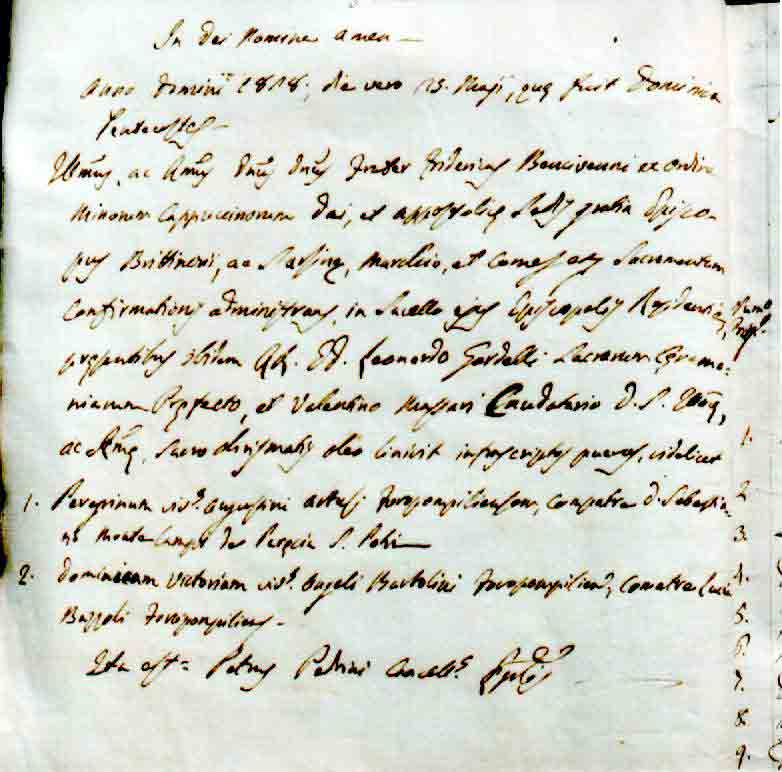 In Dei Nomine Amen
Anno Domini 1818, die vero Maji, quæ fuit Dominica
Pentecostes
Illm̃us, ac Rm̃us Dñus Dñus Frater Fridericus Bencivenni ex Ordine
Minorum Cappuccinorum Dei, et appostolicę Sedis gratia Episco-
pus Brittinorii, ac Sarsinę, Marchio, et Comes etc. Sacramentum
Confirmationis administrans, in Sacello ejus Episcopalis Residentię,
præsentibus ibidem Leonardo Gardelli Sacrarum Cęremo-
niarum Pręfecto, et Valentino Massari Caudatario D. S. Illm̃ę,
ac Rm̃ę, Sacro Chrismatis Oleo linivit infrascriptos pueros, videlicet
1. Peregrinum Augustini Artusi Foropompiliensem, Compatre D. Sebastia-
no Monte
2. Dominicam Victoriam Angeli Bartolini Foropompilien., Comatre
Bazzoli Foropompiliens
Ita est = Petrus Petrini Cancell.s Epislis
1.
2
3.
4.
5.
6.
7.
8
9.